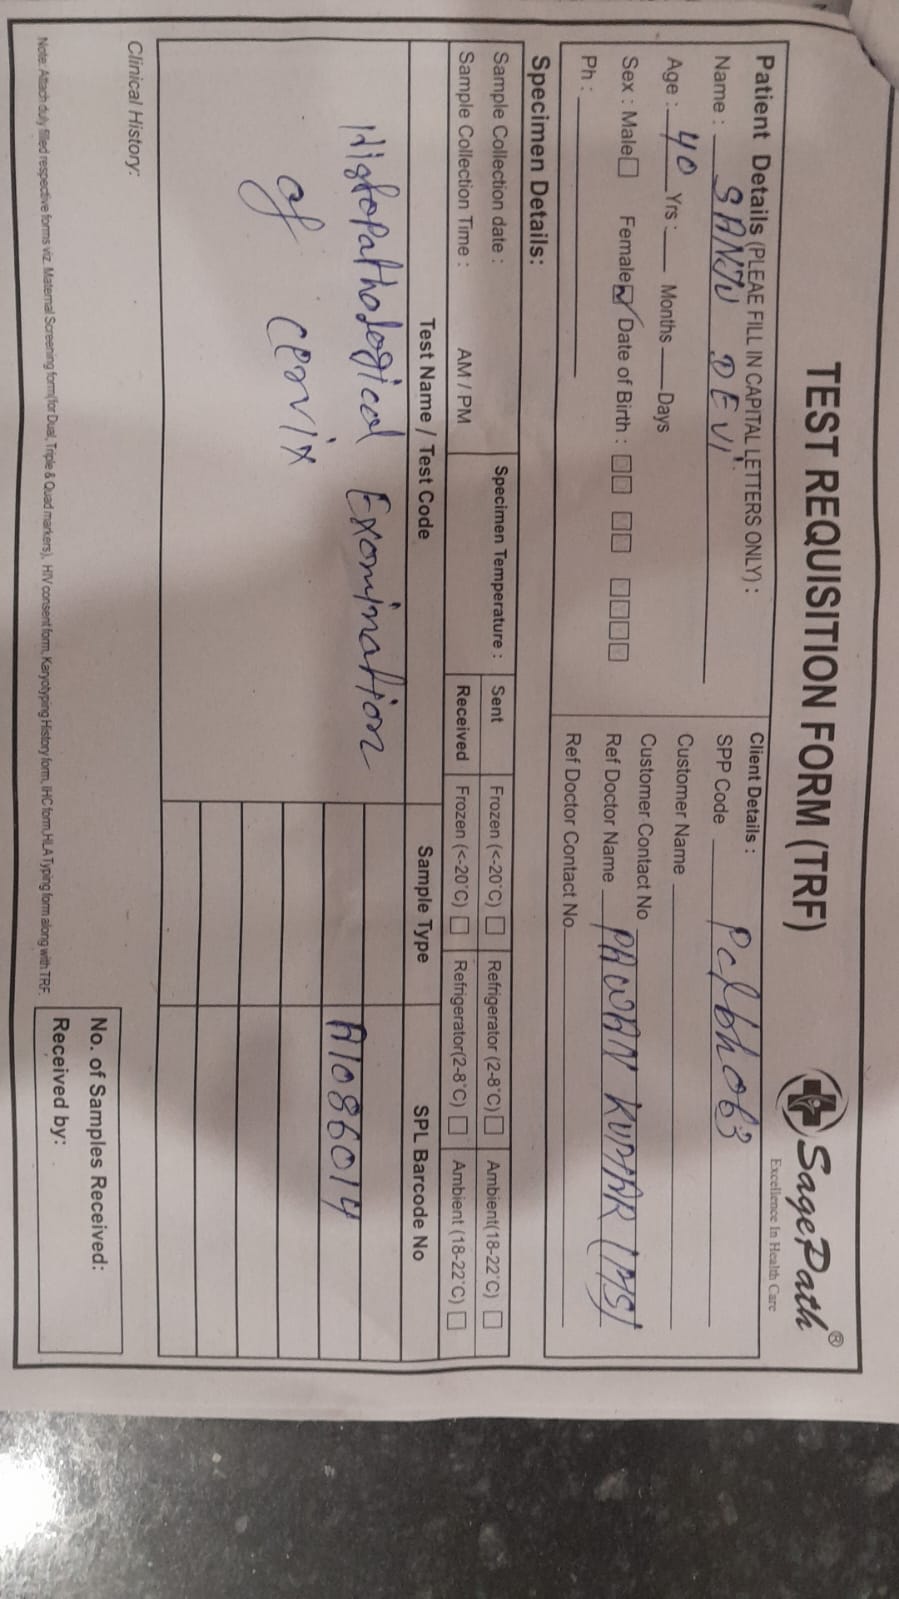 TEST REQUISITION FORM (TRF)
SagePath®
Excellence In Health Care
Patient Details (PLEAE FILL IN CAPITAL LETTERS ONLY) :
Name : SANJU DEVI
Age : 40 Yrs : Months Days
Sex : Male Female Date of Birth :
Ph :
Client Details :
SPP Code Pclbh063
Customer Name
Customer Contact No
Ref Doctor Name PAWAN KUMAR (MS)
Ref Doctor Contact No.
Specimen Details:
Sample Collection date :
Sample Collection Time : AM / PM
Specimen Temperature :
Sent Frozen (<-20°C) Refrigerator (2-8°C) Ambient(18-22°C)
Received Frozen (<-20°C) Refrigerator(2-8°C) Ambient (18-22°C)
Test Name / Test Code Sample Type SPL Barcode No
Histopathological Examination
of cervix
A1086014
Clinical History:
No. of Samples Received:
Received by:
Note: Attach duly filled respective forms viz. Maternal Screening form(for Dual, Triple & Quad markers), HIV consent form, Karyotyping History form, IHC form,HLA Typing form along with TRF.